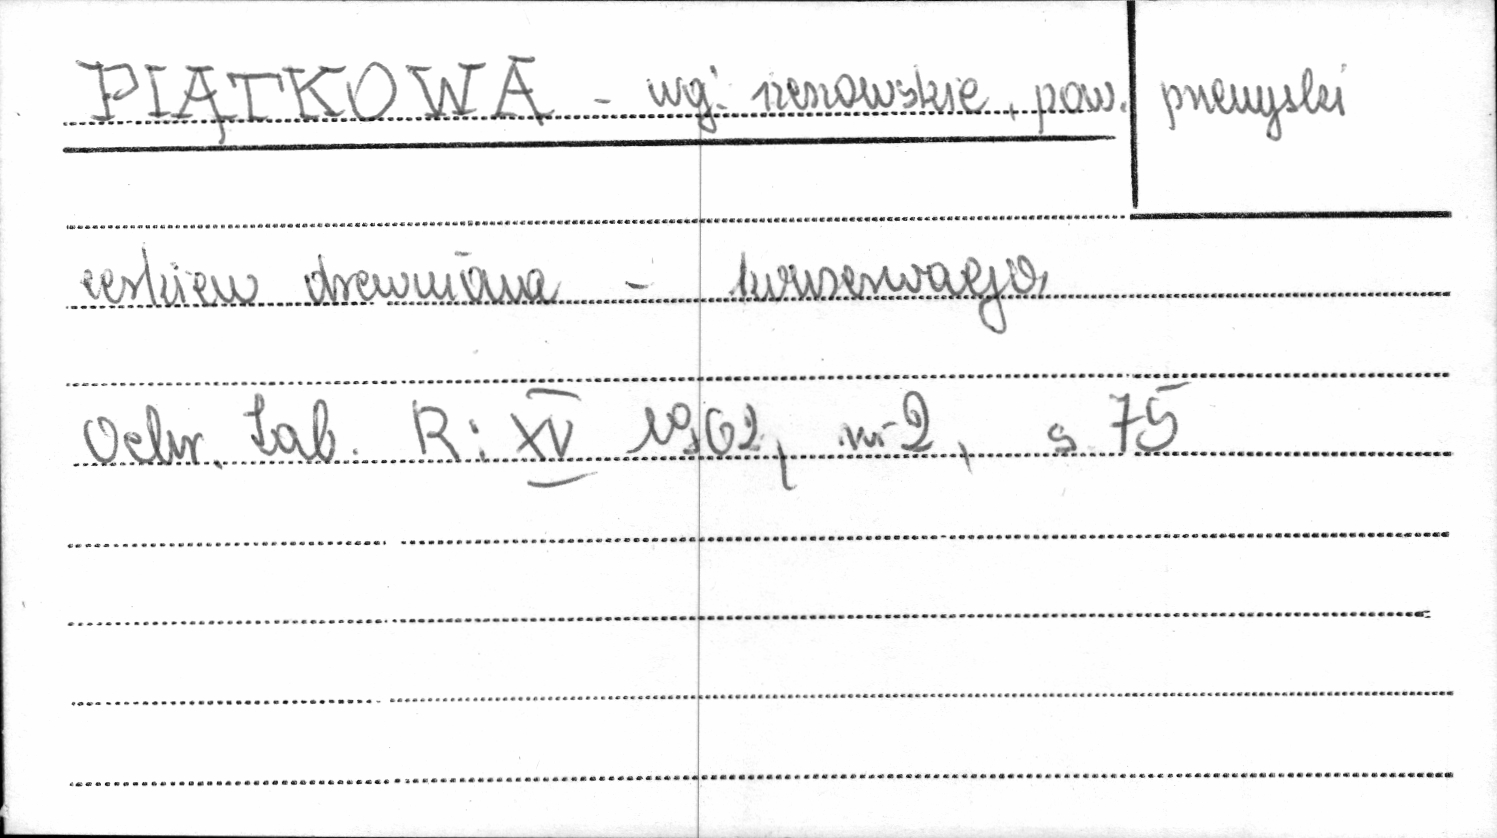 PIĄTKOWA - woj. rzeszowskie, pow. przemyski
cerkiew drewniana - konserwacja
Ochr. Zab. R: XV 1962, nr 2, s. 75